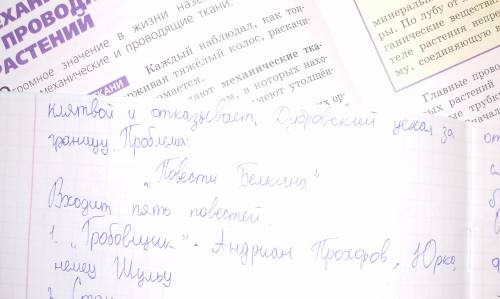 МЕХАНИ
ПРОВОД
РАСТЕНИЙ
Огромное значение в жизни назем
механические и проводящие ткани.
ТКАНИ
Каждый наблюдал, как тон-
живая тяжёлый колос, раскачи-
ломается.
механические тка-
в которых нахо-
имеют утолщён-
минеральн
ры. По лубу от л
ганические вещества
теле растения непре
му, соединяющую в
Главные прово
ых растений
клятвой и отказывает, Дубровский уехал за
границу. Проблема:
"Повести Белкина"
Входит пять повестей.
1. "Гробовщик" - Андриан Прохоров, Юрко,
немец Шульц